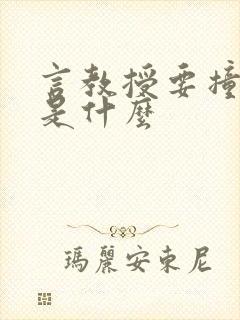 言教授要撞
是什麼
瑪麗安東尼